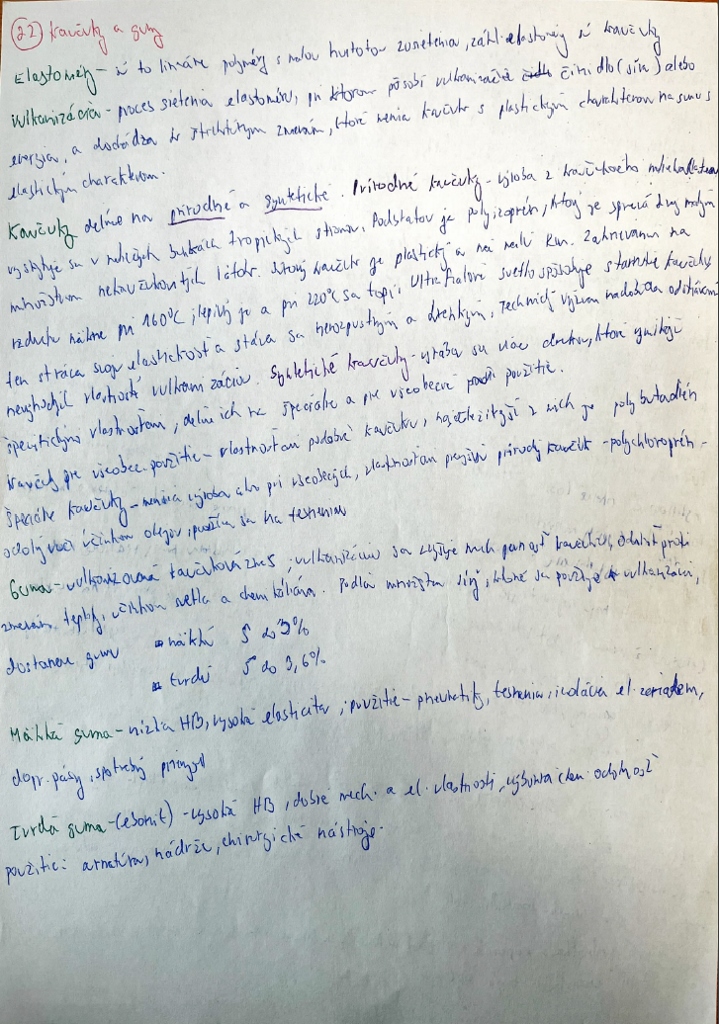 22 Kaučuky a gumy
Elastoméry - sú to lineárne polyméry s malou hustotou zosietenia, zákl. elastoméry sú kaučuky
Vulkanizácia - proces sietenia elastomérov, pri ktorom pôsobí vulkanizačné činidlo (síra) alebo
energia, a dochádza ku štruktúrnym zmenám, ktoré menia kaučuk s plastickým charakterom na gumu s
elastickým charakterom.
Kaučuky delíme na prírodné a syntetické. Prírodné kaučuky - výroba z kaučukového mlieka latexu
vyskytuje sa v mliečnych bunkách tropických stromov. Podstatou je polyizoprén, ktorý je sprevádzaný malým
množstvom nekaučukovitých látok. Surový kaučuk je plastický a má malú Rm. Zahrievaním na
vzduchu mäkne pri 160°C, lepivý je a pri 220°C sa topí. Ultrafialové svetlo spôsobuje starnutie kaučuku
ten stráca svoju elastickosť a stáva sa nerozpustným a drehkým. Technický význam nadobúda odstránením
nevýhodných vlastností vulkanizáciou. Syntetické kaučuky - vyrába sa viac druhov, ktoré vynikajú
špecifickými vlastnosťami, delíme ich na špeciálne a pre všeobecné použitie.
Kaučuky pre všeobec. použitie - vlastnosťami podobné kaučuku, najdôležitejší z nich je polybutadién
Špeciálne kaučuky - menšia výroba ako pri všeobecných, vlastnosťami prevyšujú prírodný kaučuk - polychloroprén -
odolný voči účinkom olejov, používa sa na tesnenia
Guma - vulkanizovaná kaučuková zmes, vulkanizáciou sa zvyšuje mech. pevnosť kaučuku, odolnosť proti
zmenám teploty, účinkom svetla a chemikáliám. Podľa množstva síry, ktoré sa použije k vulkanizácii,
dostaneme gumu - mäkkú S do 3%
- tvrdú S do 3,6%
Mäkká guma - nízka HB, vysoká elasticita, použitie - pneumatiky, tesnenia, izolácia el. zariadem,
dopr. pásy, spotrebný priemysel
Tvrdá guma - (ebonit) - vysoká HB, dobré mech. a el. vlastnosti, výborná chem. odolnosť
použitie: armatúra, nádrže, chirurgické nástroje.